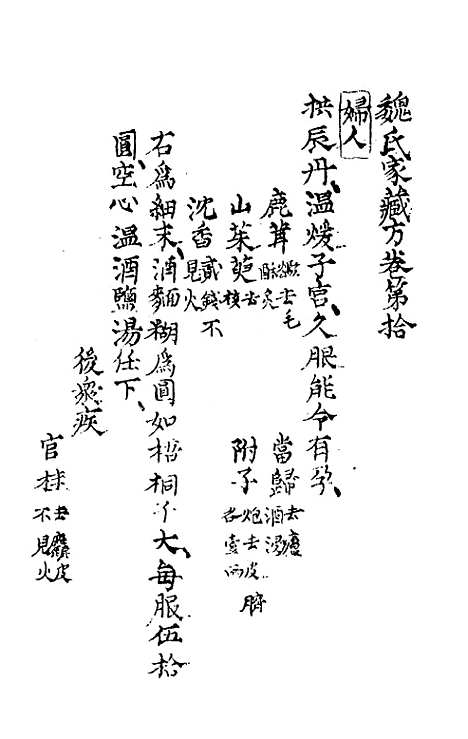 魏氏家藏方卷第拾
婦人
拱辰丹、温煖子宮、久服能令有孕、
鹿茸燎去毛酥炙 當歸去蘆酒浸
山茱萸去核 附子炮去皮臍各壹兩
沈香貳錢不見火
右爲細末、酒麵糊爲圓如梧桐子大、每服伍拾
圓、空心温酒鹽湯任下、
後衆疾
官桂去麤皮不見火